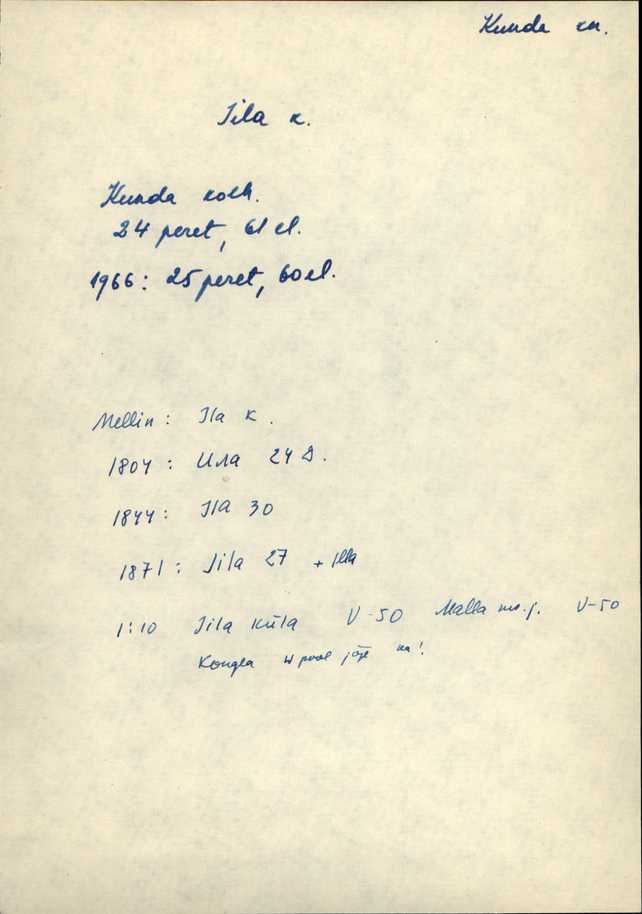 Kunda kn.
Iila k.
Kunda kolh.
24 peret, 61 el.
1966: 25 peret, 60 el.
Mellin: Ila k.
1804: Ила 24 D.
1844: Ila 30
1871: Iila 27 + Illa
1:10 Iila küla V-50 Malla ms. j. V-50
Kongla W pool jõge ka!